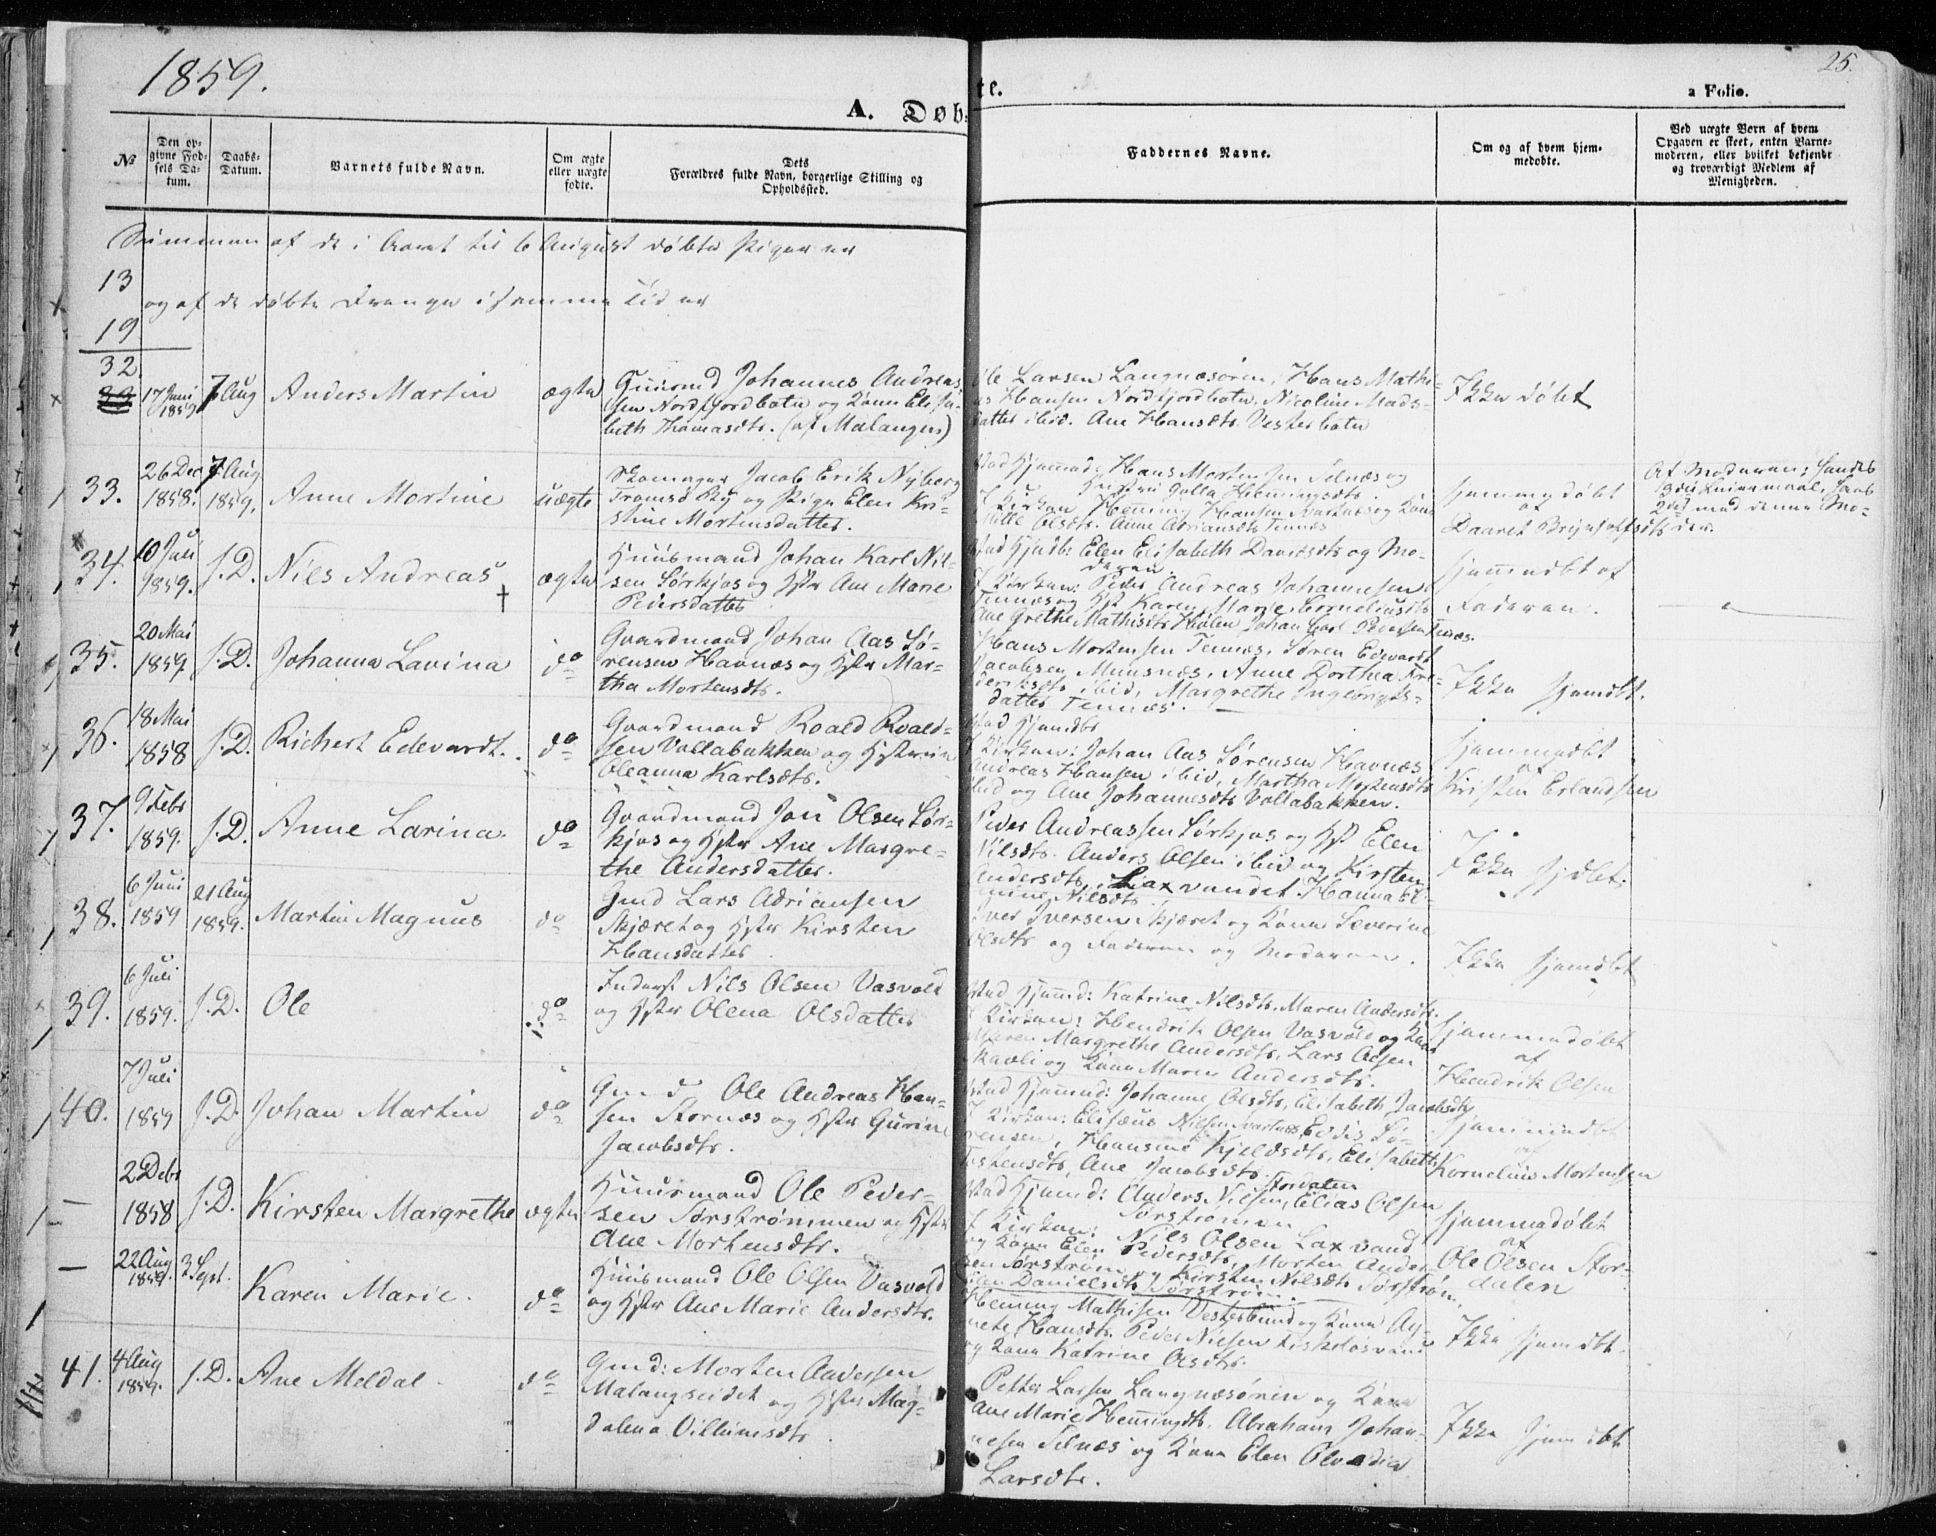 1859.
25.
A. Døb=
te.
a Folio.
№
Den op-
givne Fød-
sels Da-
tum.
Daabs-
Datum.
Barnets fulde Navn.
Om ægte
eller uægte
fødte.
Dets
Forældres fulde Navn, borgerlige Stilling og
Opholdssted.
Faddernes Navne.
Om og af hvem hjem-
medøbte.
Ved uægte Børn af hvem
Opgaven er skeet, enten Barne-
moderen, eller hvilket bekjendt
og troværdigt Medlem af
Menigheden.
Summen af de i Aaret til 6 August døbte Piger er
13
og af de døbte Drenge i samme Tid er
19
32.
17 Juni
1859
7 Aug
Anders Martin
ægte
Huusmd Johannes Andreas
sen Nordfjordbotn og Kone Elisa-
beth Thomasdtr. (af Malangen)
Ole Larsen Langnæsøren, Hans Mathi-
as Hansen Nordfjordbotn, Nicoline Mads-
datter ibid. Ane Hansdtr Vesterbotn
Ikke døbt
33.
26 Dec
1858.
7 Aug
1859.
Anne Mortine
uægte
Skomager Jacob Erik Nyberg
Tromsø By og Pige Elen Kri-
stine Mortensdatter.
Ved Hjemmd: Hans Mortensen Selnæs og
Hemingsdtr.
I Kirken Heming Hansen Svartnæs og Kone
Mille Olsdtr. Anne Adriansdtr Tennæs
hjemmedøbt
af
Daaret Brynjolfsdtr
Af Moderen; Hendes
2det med denne Mo-
der.
34.
10 Juli
1859.
S.D.
Nils Andreas
†
ægte
Huusmand Johan Karl Nil-
sen Sørkjos og Hstr Ane Marie
Pedersdatter
Ved Hjmdb: Elen Elisabeth Davidsdtr og Mo-
deren.
I Kirken: Peder Andreas Johannesen
Tennæs og Hst Karen Marie Corneliusdtr
Ane Grethe Mathisdtr Holen Johan Carl Pedersen Tennæs.
hjemmedbt af
Faderen.
35.
20 Mai
1859
S.D.
Johanna Lavina
do
Gaardmand Johan Aas Sø-
rensen Havnæs og Hstr Mar-
tha Mortensdtr.
Hans Mortensen Tennæs, Søren Edevardt
Jacobsen Maasnæs, Anne Dorthea Fre-
deriksdtr ibid, Margrethe Ingebrigts-
datter Tennæs.
Ikke hjemdbt.
36.
18 Mai
1858
S.D.
Richert Edevardt.
do
Gaardmand Roald Roald-
sen Vollabakken og Hstruen
Oleanna Karlsdtr.
Ved Hjemdbt
I Kirken: Johan Aas Sørensen Havnæs
Andreas Hansen ibid, Martha Mortensdtr
ibid og Ane Johannesdtr Vollabakken.
hjemmedbt
af
Kristen Erlandsen
37.
9 Febr
1859.
S.D.
Anne Larina.
do
Gaardmand Jon Olsen Sør-
kjos og Hstr Ane Margre-
the Andersdatter.
Peder Andreassen Sørkjos og Hst Elen
Nilsdtr. Anders Olsen ibid og Kirsten
Andersdtr, Laxvandet. Hanna El-
mine Nilsdtr.
Ikke hjdbt.
38.
6 Juni
1859
21 Aug
1859.
Martin Magnus
do
Gmd Lars Adriansen
Skjæret og Hstr Kirsten
Hansdatter
Iver Iversen Skjæret og Kone Severine
Olsdtr og Faderen og Moderen.
Ikke hjemdbt
39.
6 Juli
1859.
S.D.
Ole
do
Inderst Nils Olsen Vasvold
og Hstr Olena Olsdatter
Ved Hjemd: Katrine Nilsdtr, Maren Andersdtr.
I Kirken: Hendrik Olsen Vasvold og Kone
Maren Margrethe Andersdtr, Lars Olsen
og Kone Maren Andersdtr.
hjemmedøbt
af
Hendrik Olsen
40.
7 Juli
1859
S.D.
Johan Martin
do
Gmd Ole Andreas Han-
sen Stornæs og Hstr Gurine
Jacobsdtr.
Ved Hjemmd: Johanne Olsdtr, Elisabeth Jacobsdtr
I Kirken: Elisæus Nilsen Svartnæs, Eddis Sø-
rensen, Hansine Kjeldsdtr, Elisabeth
Tostensdtr, Ane Jacobsdtr Stordalen
hjemmedbt
af
Kornelius Mortensen
—
2 Debr
1858
S.D.
Kirsten Margrethe
ægte
Huusmand Ole Peder-
sen Sørstrømmen og Hstr
Ane Mortensdtr.
Ved Hjemd: Anders Nilsen, Elias Olsen
Sørstrømen
I Kirken: Nils Olsen Laxvand
og Kone Elen Pedersdtr, Morten Ander-
sen Sørstrøm og Kirsten Nilsdtr Sørstrøm,
Danielsdtr Sørstrøm.
hjemmedøbt
af
Ole Olsen Stor-
dalen
—
22 Aug
1859.
3 Sept.
Karen Marie.
do
Huusmand Ole Olsen Vasvold
og Hstr Ane Marie Andersdtr.
Heming Mathisen Vesterbund og Kone Ag-
nete Hansdtr. Peder Nielsen Fiskeløsvand
og Kone Katrine Olsdtr.
Ikke hjemdbt.
41.
4 Aug
1859.
S.D.
Ane Meldal.
do
Gmd: Morten Andersen
Malangseidet og Hstr Mag-
dalena Villumsdtr.
Petter Larsen Langnæsøren og Kone
Ane Marie Hemingsdtr. Abraham Johan-
nesen Selnæs og Kone Elen Olvedia
Larsdtr.
Ikke hjemdbt